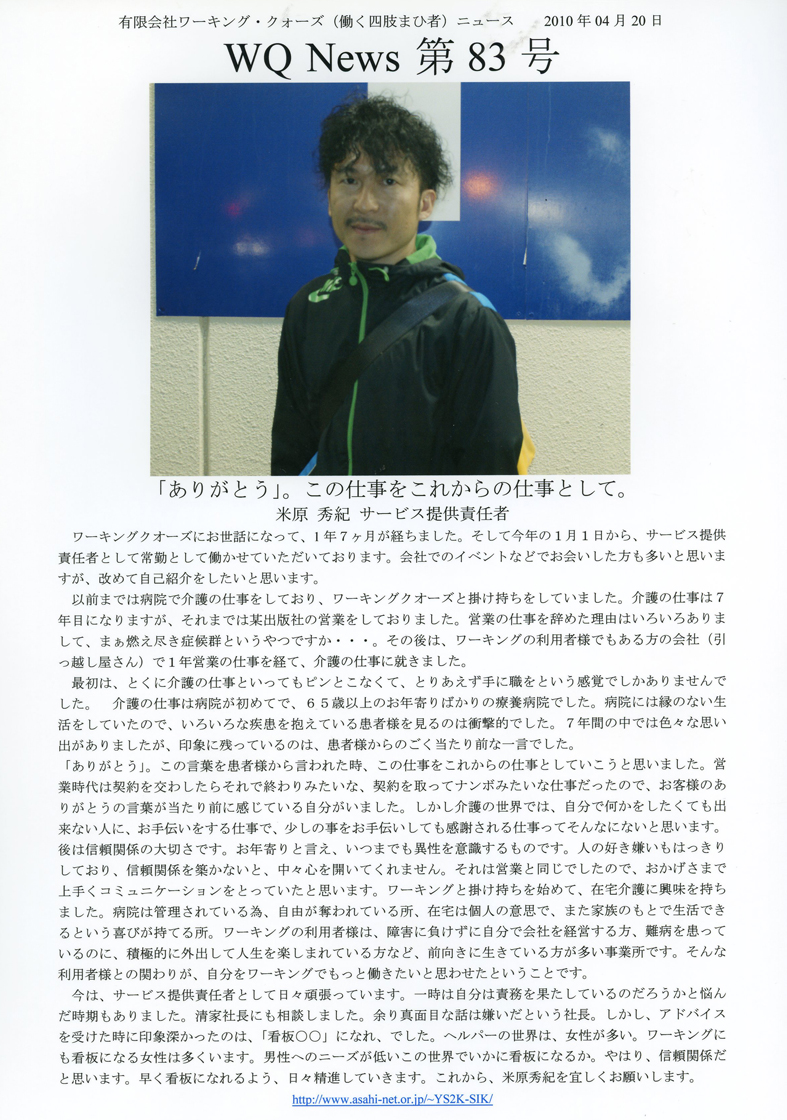 有限会社ワーキング・クォーズ（働く四肢まひ者）ニュース　　2010 年 04 月 20 日
WQ News 第 83 号
「ありがとう」。この仕事をこれからの仕事として。
米原 秀紀 サービス提供責任者
　ワーキングクオーズにお世話になって、1 年７ヶ月が経ちました。そして今年の１月１日から、サービス提供
責任者として常勤として働かせていただいております。会社でのイベントなどでお会いした方も多いと思いま
すが、改めて自己紹介をしたいと思います。
　以前までは病院で介護の仕事をしており、ワーキングクオーズと掛け持ちをしていました。介護の仕事は７
年目になりますが、それまでは某出版社の営業をしておりました。営業の仕事を辞めた理由はいろいろありま
して、まぁ燃え尽き症候群というやつですか・・・。その後は、ワーキングの利用者様でもある方の会社（引
っ越し屋さん）で１年営業の仕事を経て、介護の仕事に就きました。
　最初は、とくに介護の仕事といってもピンとこなくて、とりあえず手に職をという感覚でしかありませんで
した。　介護の仕事は病院が初めてで、６５歳以上のお年寄りばかりの療養病院でした。病院には縁のない生
活をしていたので、いろいろな疾患を抱えている患者様を見るのは衝撃的でした。７年間の中では色々な思い
出がありましたが、印象に残っているのは、患者様からのごく当たり前な一言でした。
「ありがとう」。この言葉を患者様から言われた時、この仕事をこれからの仕事としていこうと思いました。営
業時代は契約を交わしたらそれで終わりみたいな、契約を取ってナンボみたいな仕事だったので、お客様のあ
りがとうの言葉が当たり前に感じている自分がいました。しかし介護の世界では、自分で何かをしたくても出
来ない人に、お手伝いをする仕事で、少しの事をお手伝いしても感謝される仕事ってそんなにないと思います。
後は信頼関係の大切さです。お年寄りと言え、いつまでも異性を意識するものです。人の好き嫌いもはっきり
しており、信頼関係を築かないと、中々心を開いてくれません。それは営業と同じでしたので、おかげさまで
上手くコミュニケーションをとっていたと思います。ワーキングと掛け持ちを始めて、在宅介護に興味を持ち
ました。病院は管理されている為、自由が奪われている所、在宅は個人の意思で、また家族のもとで生活でき
るという喜びが持てる所。ワーキングの利用者様は、障害に負けずに自分で会社を経営する方、難病を患って
いるのに、積極的に外出して人生を楽しまれている方など、前向きに生きている方が多い事業所です。そんな
利用者様との関わりが、自分をワーキングでもっと働きたいと思わせたということです。
　今は、サービス提供責任者として日々頑張っています。一時は自分は責務を果たしているのだろうかと悩ん
だ時期もありました。清家社長にも相談しました。余り真面目な話は嫌いだという社長。しかし、アドバイス
を受けた時に印象深かったのは、「看板〇〇」になれ、でした。ヘルパーの世界は、女性が多い。ワーキングに
も看板になる女性は多くいます。男性へのニーズが低いこの世界でいかに看板になるか。やはり、信頼関係だ
と思います。早く看板になれるよう、日々精進していきます。これから、米原秀紀を宜しくお願いします。
http://www.asahi-net.or.jp/~YS2K-SIK/